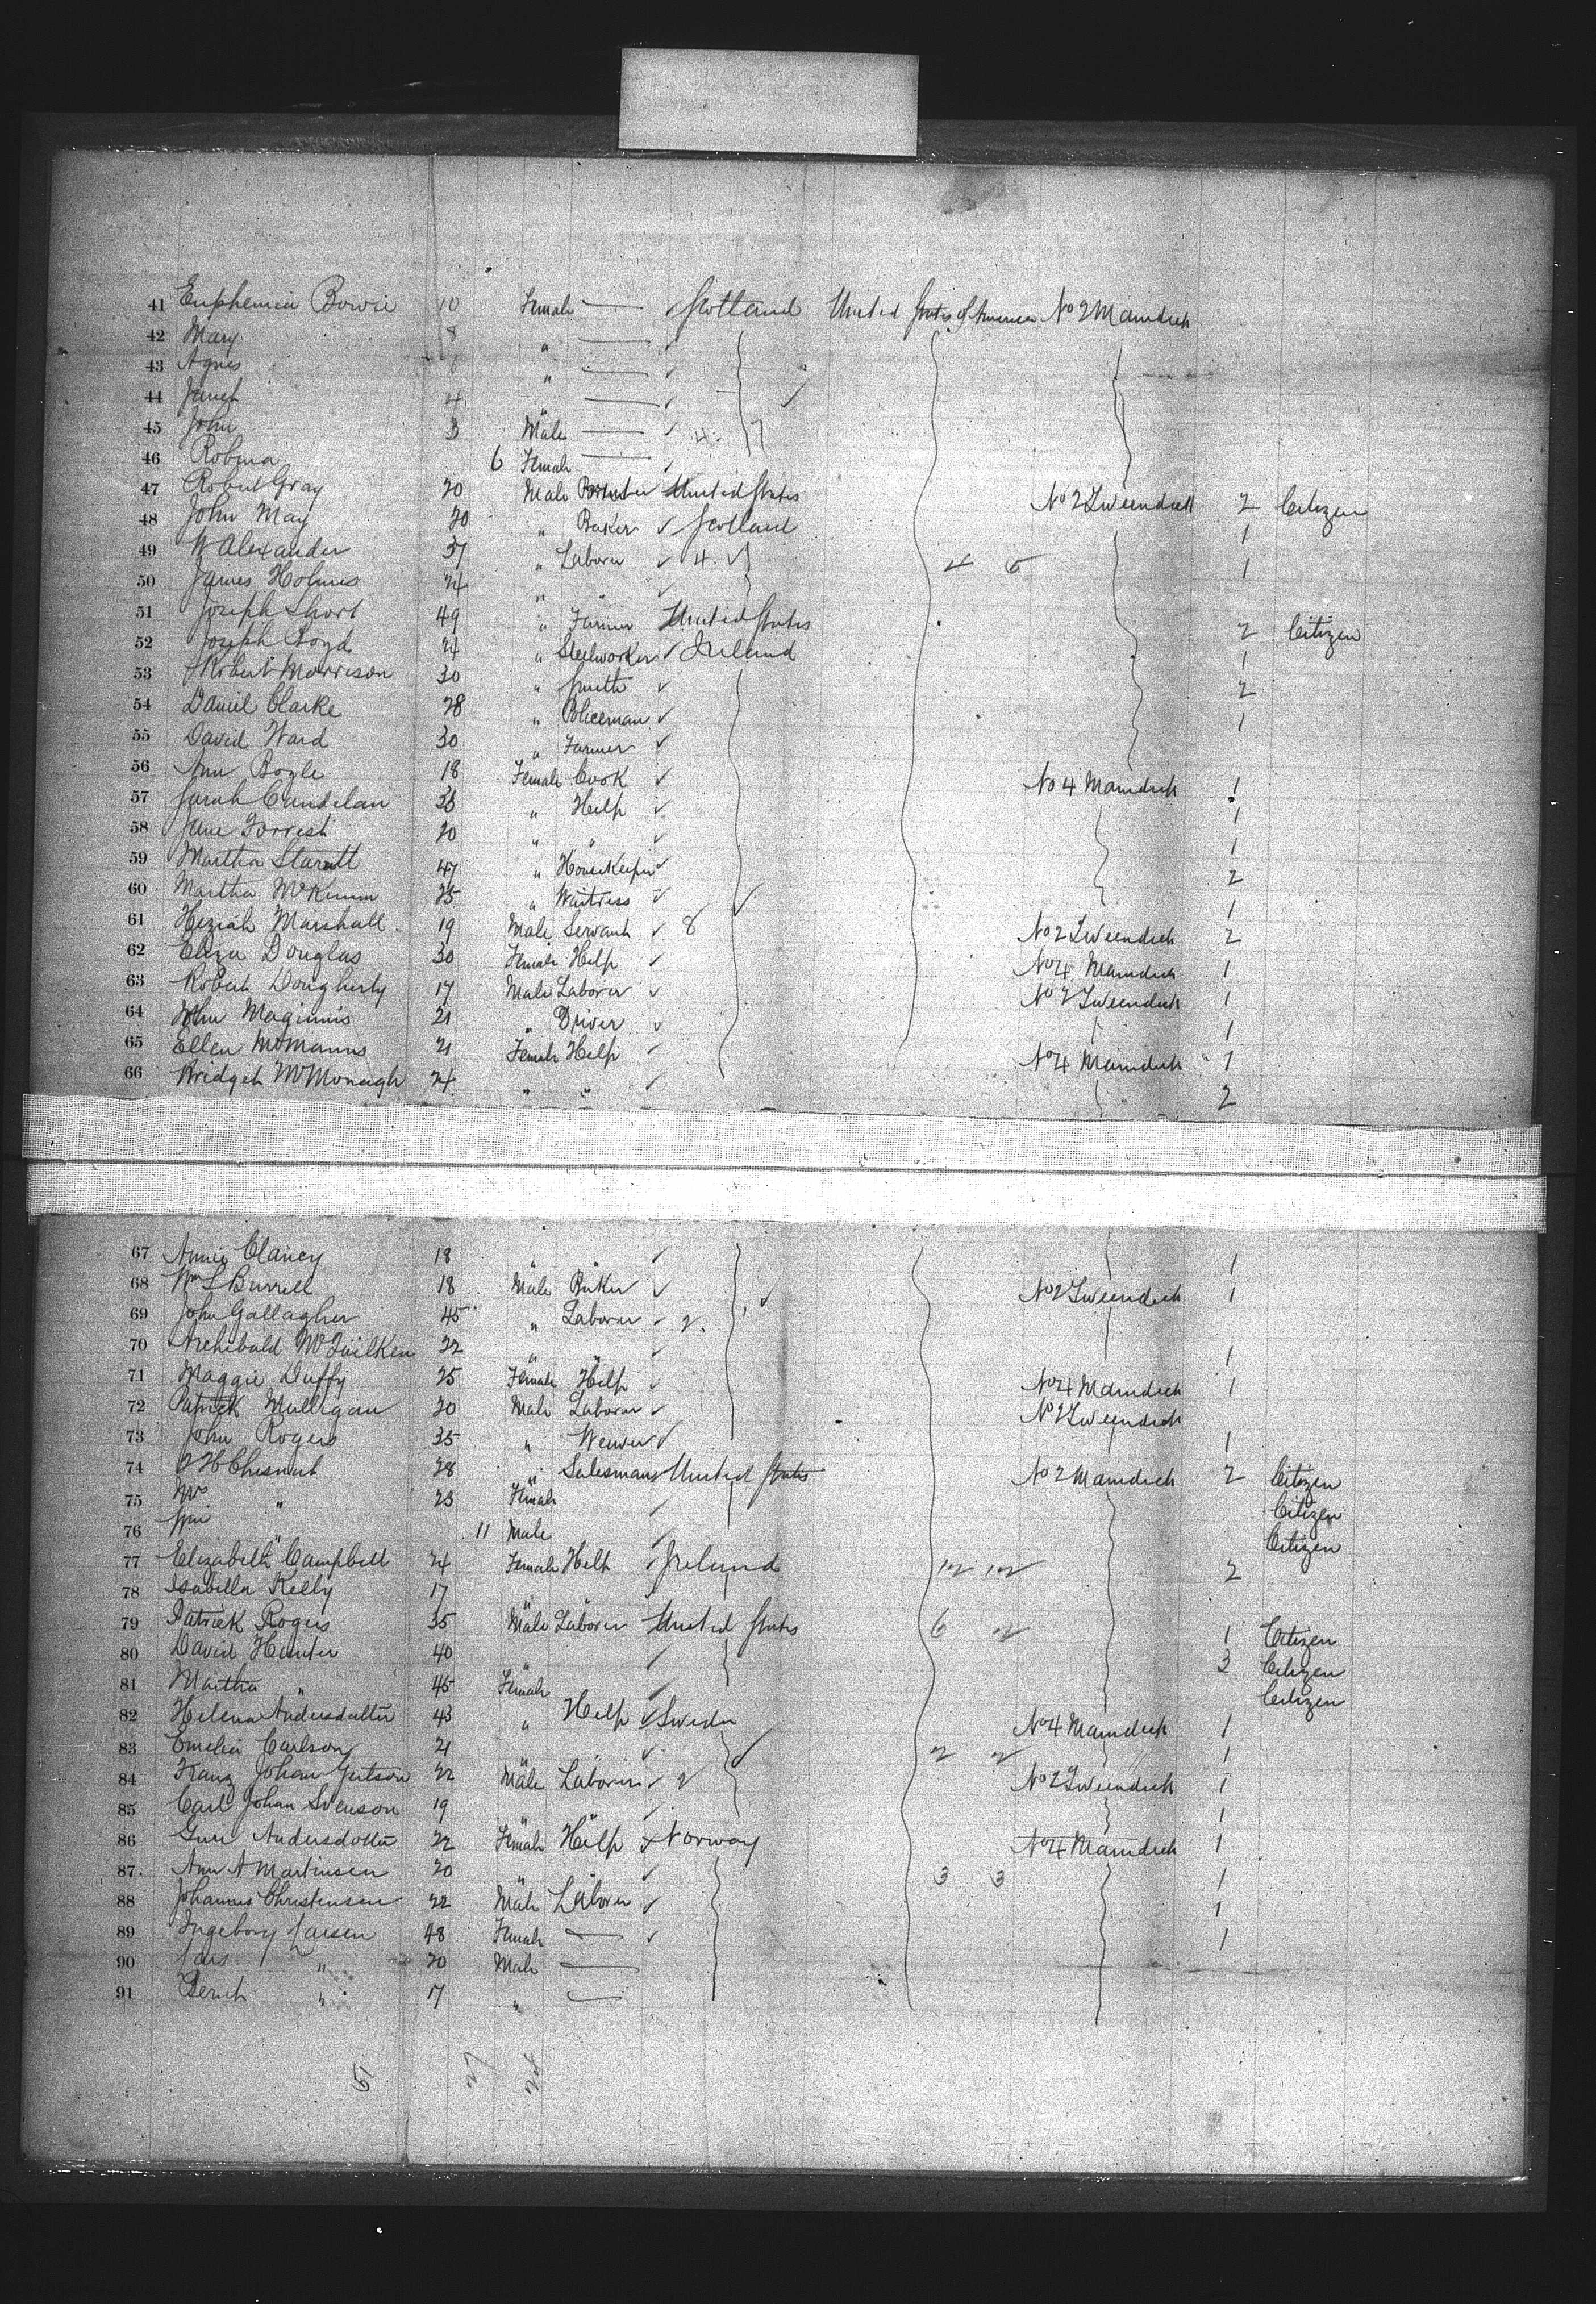 41 Euphemia Bowie 10 Female — Scotland United States of America No 2 Maindeck
42 Mary 8 " —
43 Agnes 6 " —
44 Janet 4 " —
45 John 3 Male — 4
46 Robina 6 Female —
47 Robert Gray 20 Male United States No 2 Tweendeck 2 Citizen
48 John May 20 " Baker Scotland 1
49 W Alexander 37 " Laborer 4 4 5 1
50 James Holmes 24 " "
51 Joseph Short 49 " Farmer United States 2 Citizen
52 Joseph Boyd 24 " Steelworker Ireland 1
53 Robert Morrison 30 " Smith 2
54 Daniel Clarke 28 " Policeman 1
55 David Ward 30 " Farmer
56 Ann Bogle 18 Female Cook No 4 Maindeck 1
57 Sarah 36 " Help 1
58 Jane Forrest 20 " " 1
59 Martha Starett 47 " Housekeeper 2
60 Martha 25 " Waitress 1
61 Heziah Marshall 19 Male Servant 8 No 2 Tweendeck 2
62 Eliza Douglas 30 Female Help No 4 Maindeck 1
63 Robert Dougherty 17 Male Laborer No 2 Tweendeck 1
64 John Maginnis 21 " Driver 1
65 Ellen McManus 21 Female Help No 4 Maindeck 1
66 Bridget McMonagh 24 " " 2
67 Annie Clancy 18 " " 1
68 Wm S Burrell 18 Male Baker No 2 Tweendeck 1
69 John Gallagher 45 " Laborer 2
70 Archibald McQuilken 22 " " 1
71 Maggie Duffy 25 Female Help No 4 Maindeck 1
72 Patrick Mulligan 20 Male Laborer No 2 Tweendeck
73 John Rogers 35 " Weaver 1
74 Chesnut 28 " Salesman United States No 2 Maindeck 2 Citizen
75 Mrs " 23 Female Citizen
76 Wm " 11 Male Citizen
77 Elizabeth Campbell 24 Female Help Ireland 12 12 2
78 Isabella Kelly 17 " "
79 Patrick Rogers 35 Male Laborer United States 6 2 1 Citizen
80 David Hunter 40 " 3 Citizen
81 Martha " 45 Female Citizen
82 Helena Andersdotter 43 " Help Sweden No 4 Maindeck 1
83 Emelia Carlson 21 " 2 2 1
84 Franz Johan 22 Male Laborer 2 No 2 Tweendeck 1
85 Carl Johan Svenson 19 " " 1
86 Andersdotter 22 Female Help Norway No 4 Maindeck 1
87 Ann A Martinsen 20 " " 3 3 1
88 Johannes Christensen 22 Male Laborer 1
89 Ingeborg Larsen 48 Female — 1
90 Lars " 20 Male —
91 " 17 " —
51 27 24